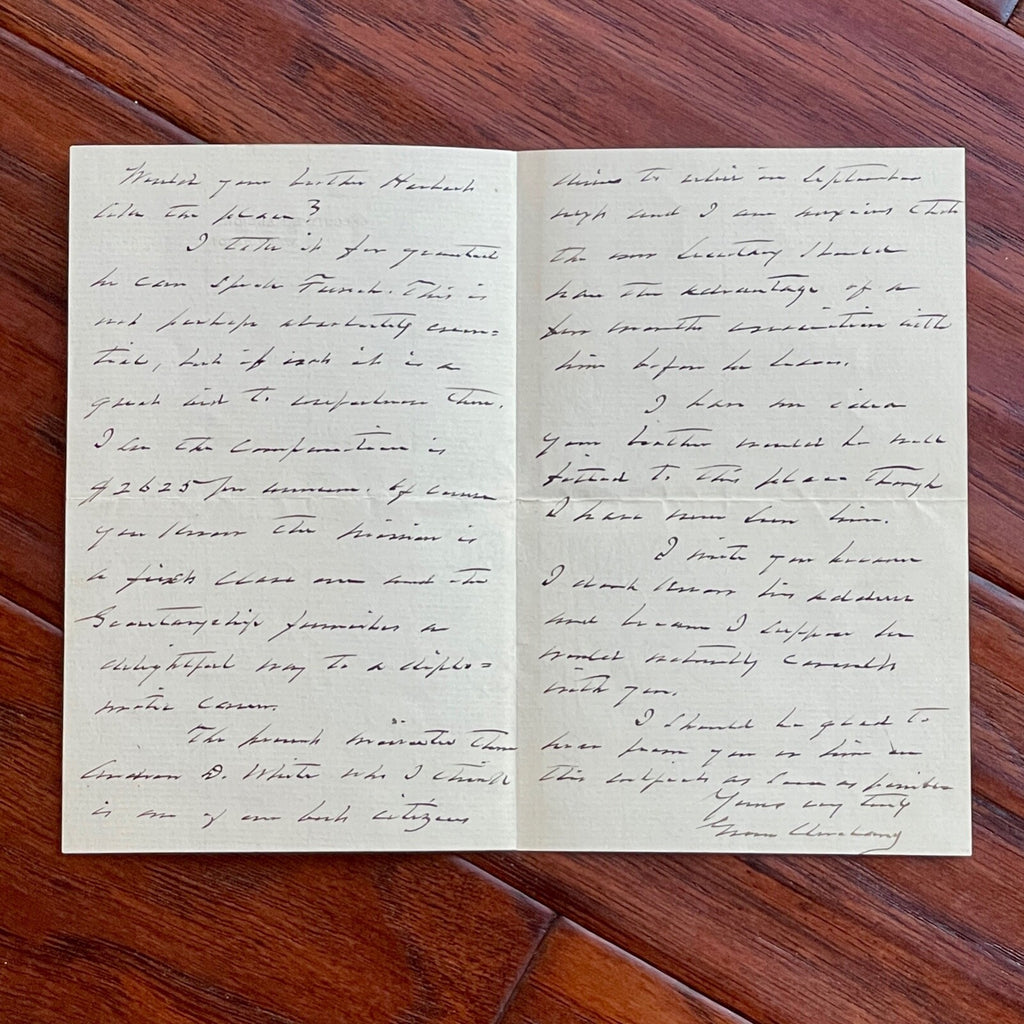 Would your brother Herbert
like the place?
I take it for granted
he can speak French. This is
not perhaps absolutely essen=
tial, but if not it is a
great aid to usefulness there.
I see the compensation is
$2625 per annum. Of course
you know the mission is
a first class one and the
Secretaryship furnishes a
delightful way to a diplo=
matic career.
The present minister there
Andrew D. White who I think
is one of our best citizens
desires to retire in September
next and I am anxious that
the new Secretary should
have the advantage of a
few months association with
him before he leaves.
I have an idea
your brother would be well
fitted to this place though
I have never seen him.
I write you because
I don't know his address
and because I suppose he
would naturally consult
with you.
I should be glad to
hear from you or him on
this subject as soon as possible
Yours very truly
Grover Cleveland